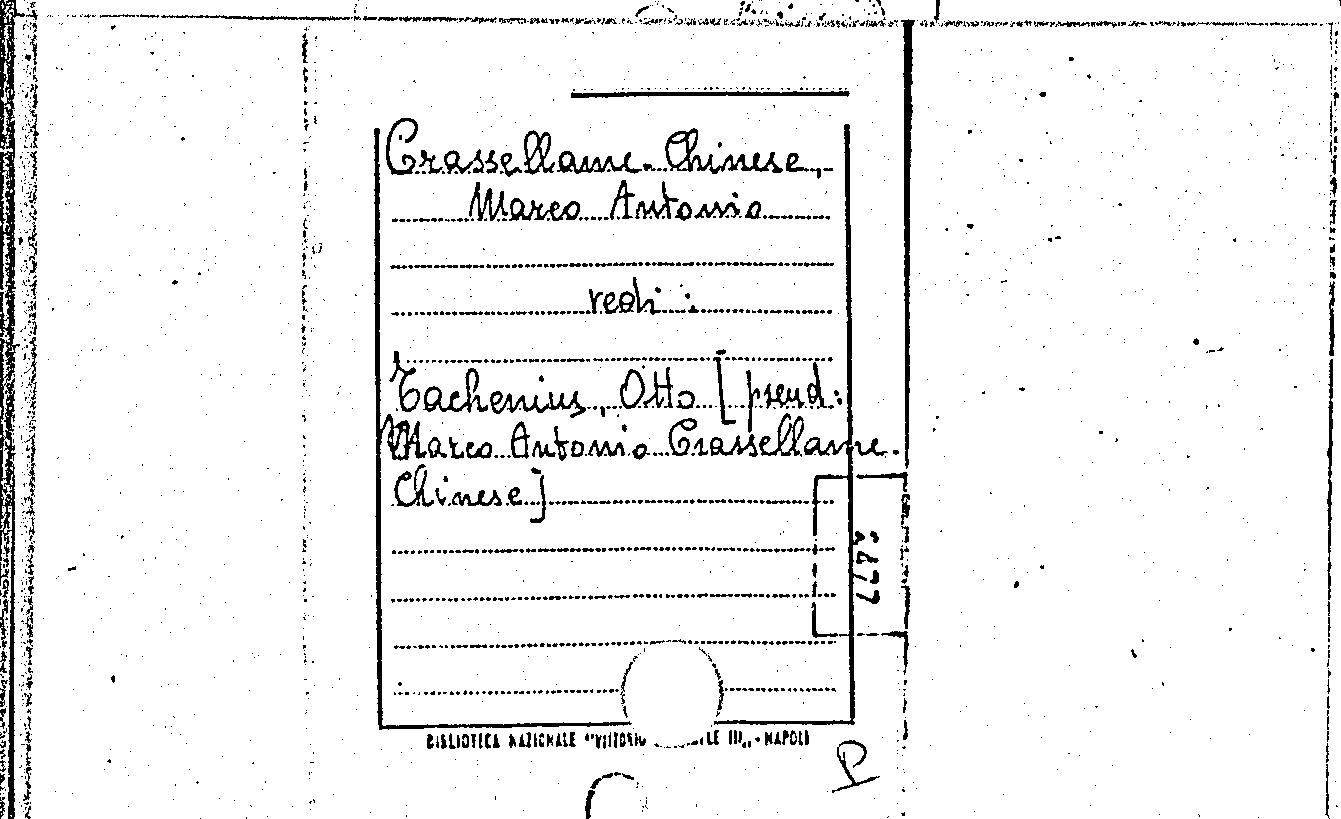 Crassellame-Chinese,
Marco Antonio
vedi:
Tachenius, Otto [pseud:
Marco Antonio Crassellame-
Chinese]
2477
BIBLIOTECA NAZIONALE "VITTORIO LE III„ - NAPOLI
P